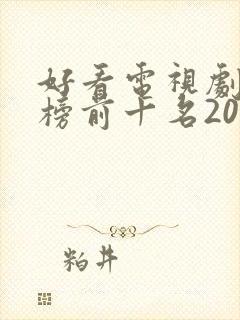 好看電視劇
榜前十名20
粕井